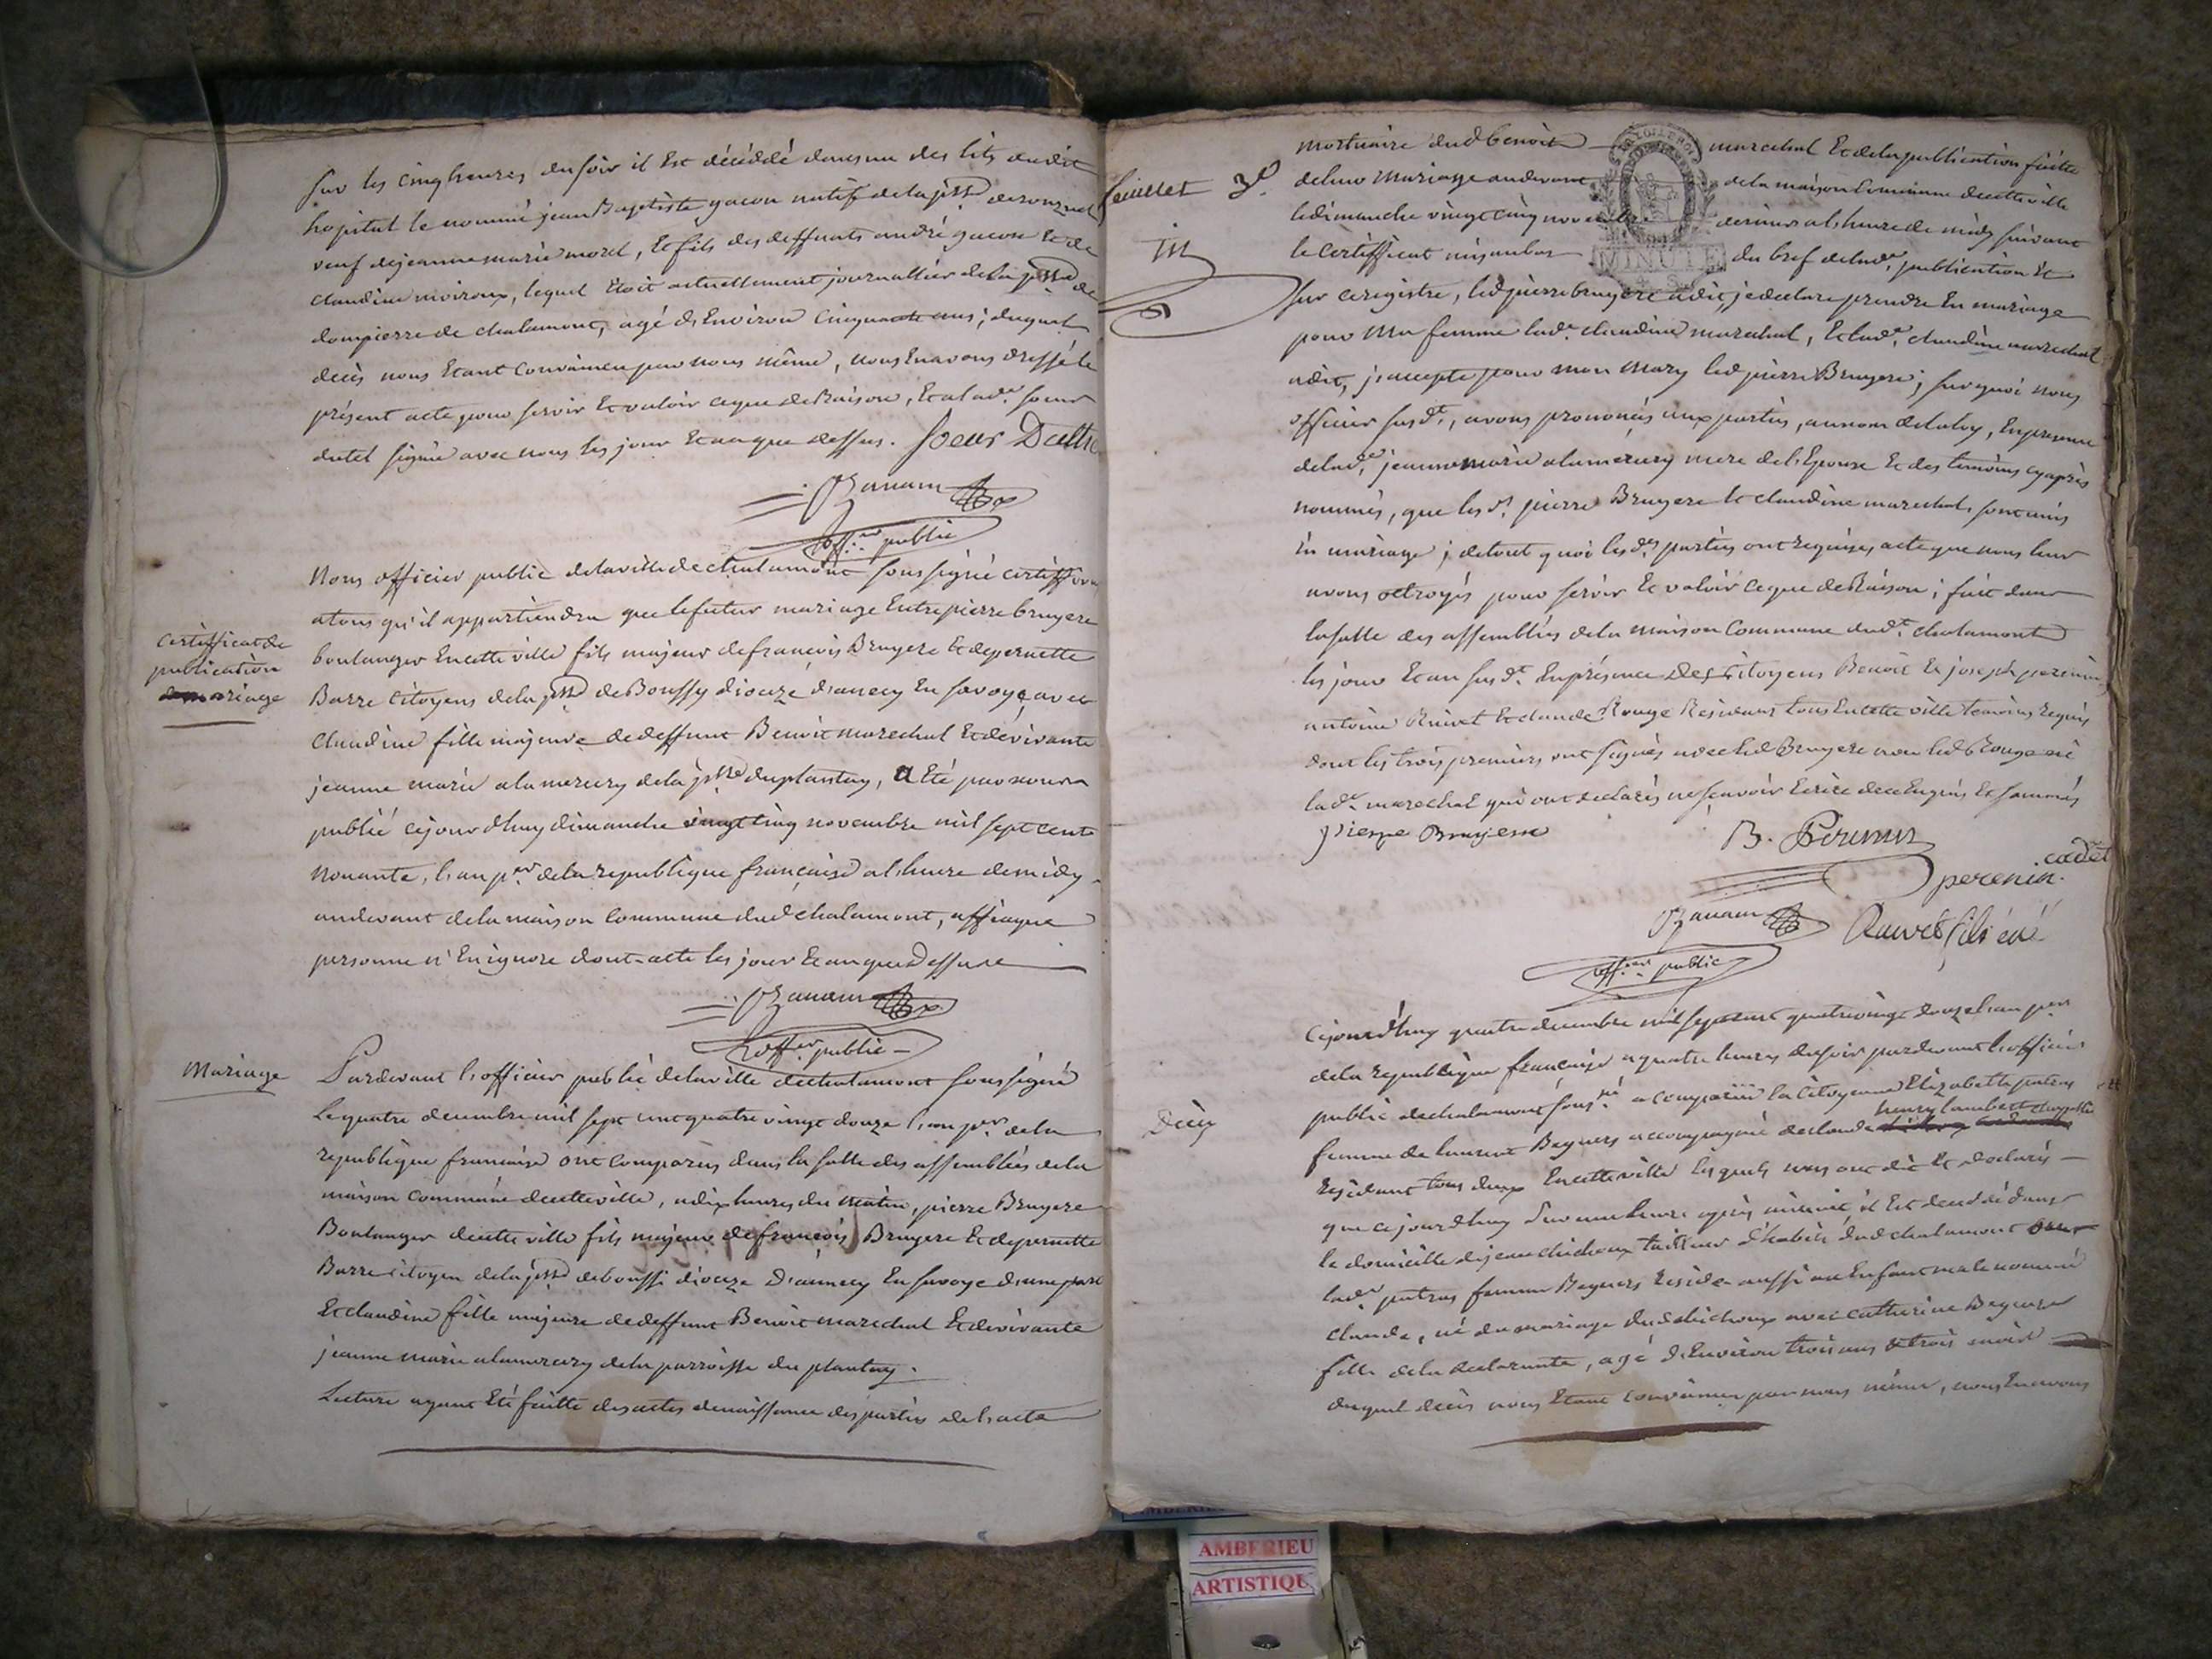 sur les cinq heures du soir il Est décéddé dans un des lits dudit
hopital le nommé jean Baptiste gacon natif de la psse
veuf de jeanne marie morel, Et fils des deffunts andré gacon Et de
claudine moiroux, lequel étoit actuellement journallier de la psse de
dompierre de chalamont, agé d'Environ cinquante ans; duquel
décès nous Etant convaincu par nous même, nous En avons dressé le
présent acte pour servir Et valoir ceque de Raison, Et a lad.e soeur
dutel signé avec nous les jour Et an que dessus. Soeur
Banam
off.er public
Nous officier public de la ville de chalamont sous signé certiffions
atous qu'il appartiendra que le futur mariage Entre pierre bruyere
certifficat de
publication
de mariage
boulanger En cette ville fils majeur de francois Bruyere Et de pernette
Barre citoyens de la psse de Boussy diouze d'anecy En savoye avec
claudine fille majeure de deffunt Benoit marechal Et de vivante
jeanne marie alamercery de la psse du plantay, a Eté par nous
publié cejourdhuy dimanche vingt cinq novembre mil sept cents
nonante, l'an p.er de la republique française a l'heure de midy
audevant de la maison commune dud chalamont, affinque
personne n'En ignore dont acte les jour Et an que dessus
Banam
off.er public
Mariage
Pardevant l'officier public de la ville de chalamont sous signé
Le quatre decembre mil sept cent quatre vingt douze l'an p.er de la
republique francaise ont comparus dans la salle des assemblées de la
maison commune de cette ville, a dix heures du matin, pierre Bruyere
Boulanger de cette ville fils majeur de francois Bruyere Et de pernette
Barre citoyen de la psse de boussi diouze D'annecy En savoye d'une part
Et claudine fille majeure de deffunt Benoit marechal Et de vivante
jeanne marie alamercery de la parroisse du plantay.
Lecture ayant Eté faitte des actes de naissance des parties de l'acte
feuillet 3.e
mortuaire dud benoit marechal Et de la publication faitte
de leur mariage audevant de la maison commune de cette ville
le dimanche vingt cinq novembre dernier a l'heure de midy suivant
le certifficat mis au bas du bref de lad.e publication Et
MINUTE
sur ce registre, led pierre bruyere a dit, je declare prendre En mariage
pour Ma femme lad.e claudine marechal, Et lad.e claudine marechal
a dit, j'accepte pour mon mary led pierre Bruyere; sur quoi nous
officier susd.t, avons prononcés aux parties, au nom de la loy, En presence
de lad.e jeanne marie alamercery mere de l'Epouse Et des temoins cy après
nommés, que les d.s pierre Bruyere Et claudine marechal sont unis
En mariage; de tout quoi les d.es parties ont requises acte que nous leur
avons octroyés pour servir Et valoir ceque de Raison; fait dans
la salle des assemblées de la maison commune dud.t chalamont
les jour Et an susd.t En présence des Citoyens Benoit Et joseph perenin,
antoine Et claude Rouge Résidant tous En cette ville temoins requis
dont les trois premiers ont signés avec led Bruyere non led Rouge ni
lad.e marechal qui ont declarés ne scavoir Ecrire de ce Enquis Et sommés
pierre Bruyere
B. Perenin
perenin cadet
Banam
fils ené
off.er public
Cejourd'huy quatre decembre mil sept cent quatre vingt douze l'an p.er
de la republique française a quatre heures du soir pardevant l'officier
Décès
public de chalamont sous.né a comparu la citoyenne Elizabette putras
henry lambert
femme de laurent Beguers accompagnée de claude
Résidant tous deux En cette ville lesquels nous ont dit Et declarés
que cejourdhuy sur une heure après minuit il Est deceddé dans
le domicille de jean chichoux tailleur d'habits dud chalamont
lad.e putras femme Beguers Reside aussi un Enfant male nommé
claude, né du mariage dud chichoux avec catherine
fille de la declarante, agé d'Environ trois ans Et trois mois
duquel décès nous Etant convaincu par nous même, nous En avons
AMBERIEU
ARTISTIQU